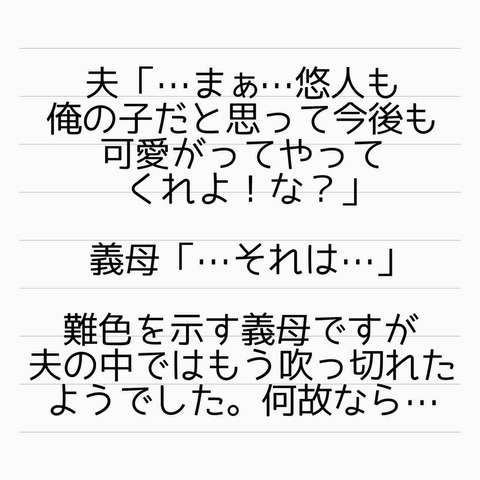 夫「…まぁ…悠人も
俺の子だと思って今後も
可愛がってやって
くれよ！な？」
義母「…それは…」
難色を示す義母ですが
夫の中ではもう吹っ切れた
ようでした。何故なら…